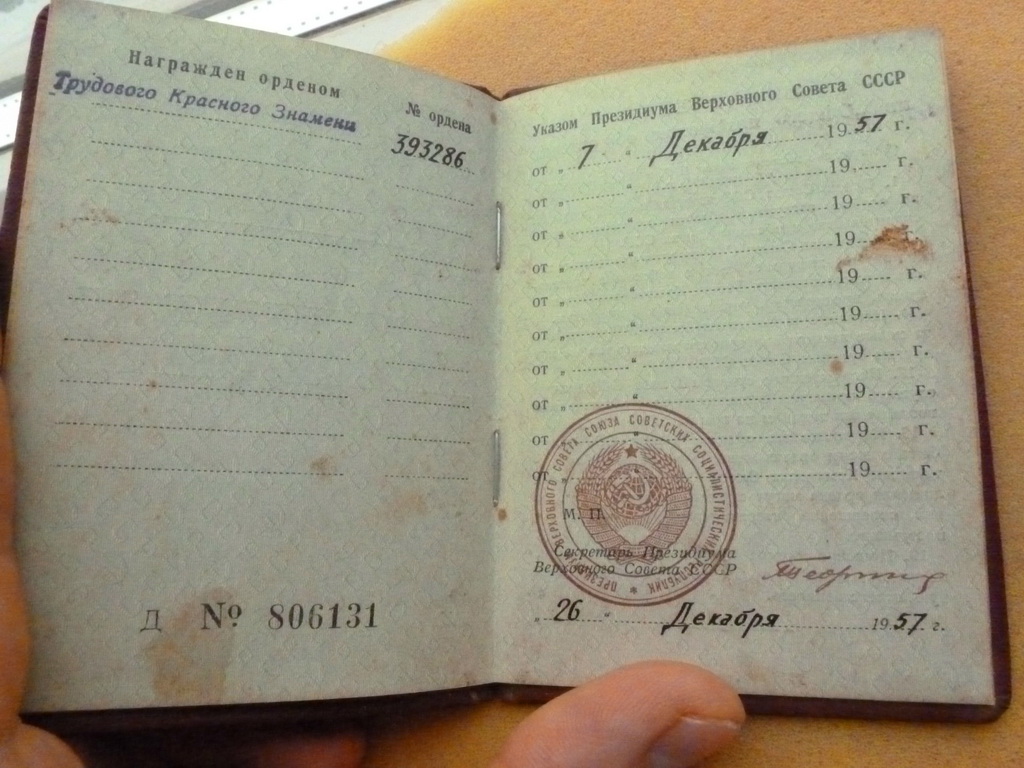 Награжден орденом
Трудового Красного Знамени
№ ордена
393286
Д № 806131
Указом Президиума Верховного Совета СССР
от „ 7 “ Декабря 1957 г.
от „ “ 19 г.
от „ “ 19 г.
от „ “ 19 г.
от „ “ 19 г.
от „ “ 19 г.
от „ “ 19 г.
от „ “ 19 г.
от „ “ 19 г.
от „ “ 19 г.
ПРЕЗИДИУМ ВЕРХОВНОГО СОВЕТА СОЮЗА СОВЕТСКИХ СОЦИАЛИСТИЧЕСКИХ РЕСПУБЛИК
М. П.
Секретарь Президиума
Верховного Совета СССР
„ 26 “ Декабря 1957 г.